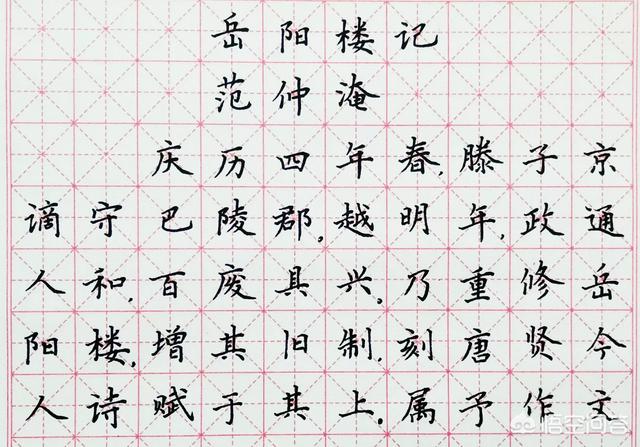 岳阳楼记
范仲淹
庆历四年春,滕子京
谪守巴陵郡。越明年,政通
人和,百废具兴。乃重修岳
阳楼,增其旧制,刻唐贤今
人诗赋于其上。属予作文
悟空问答